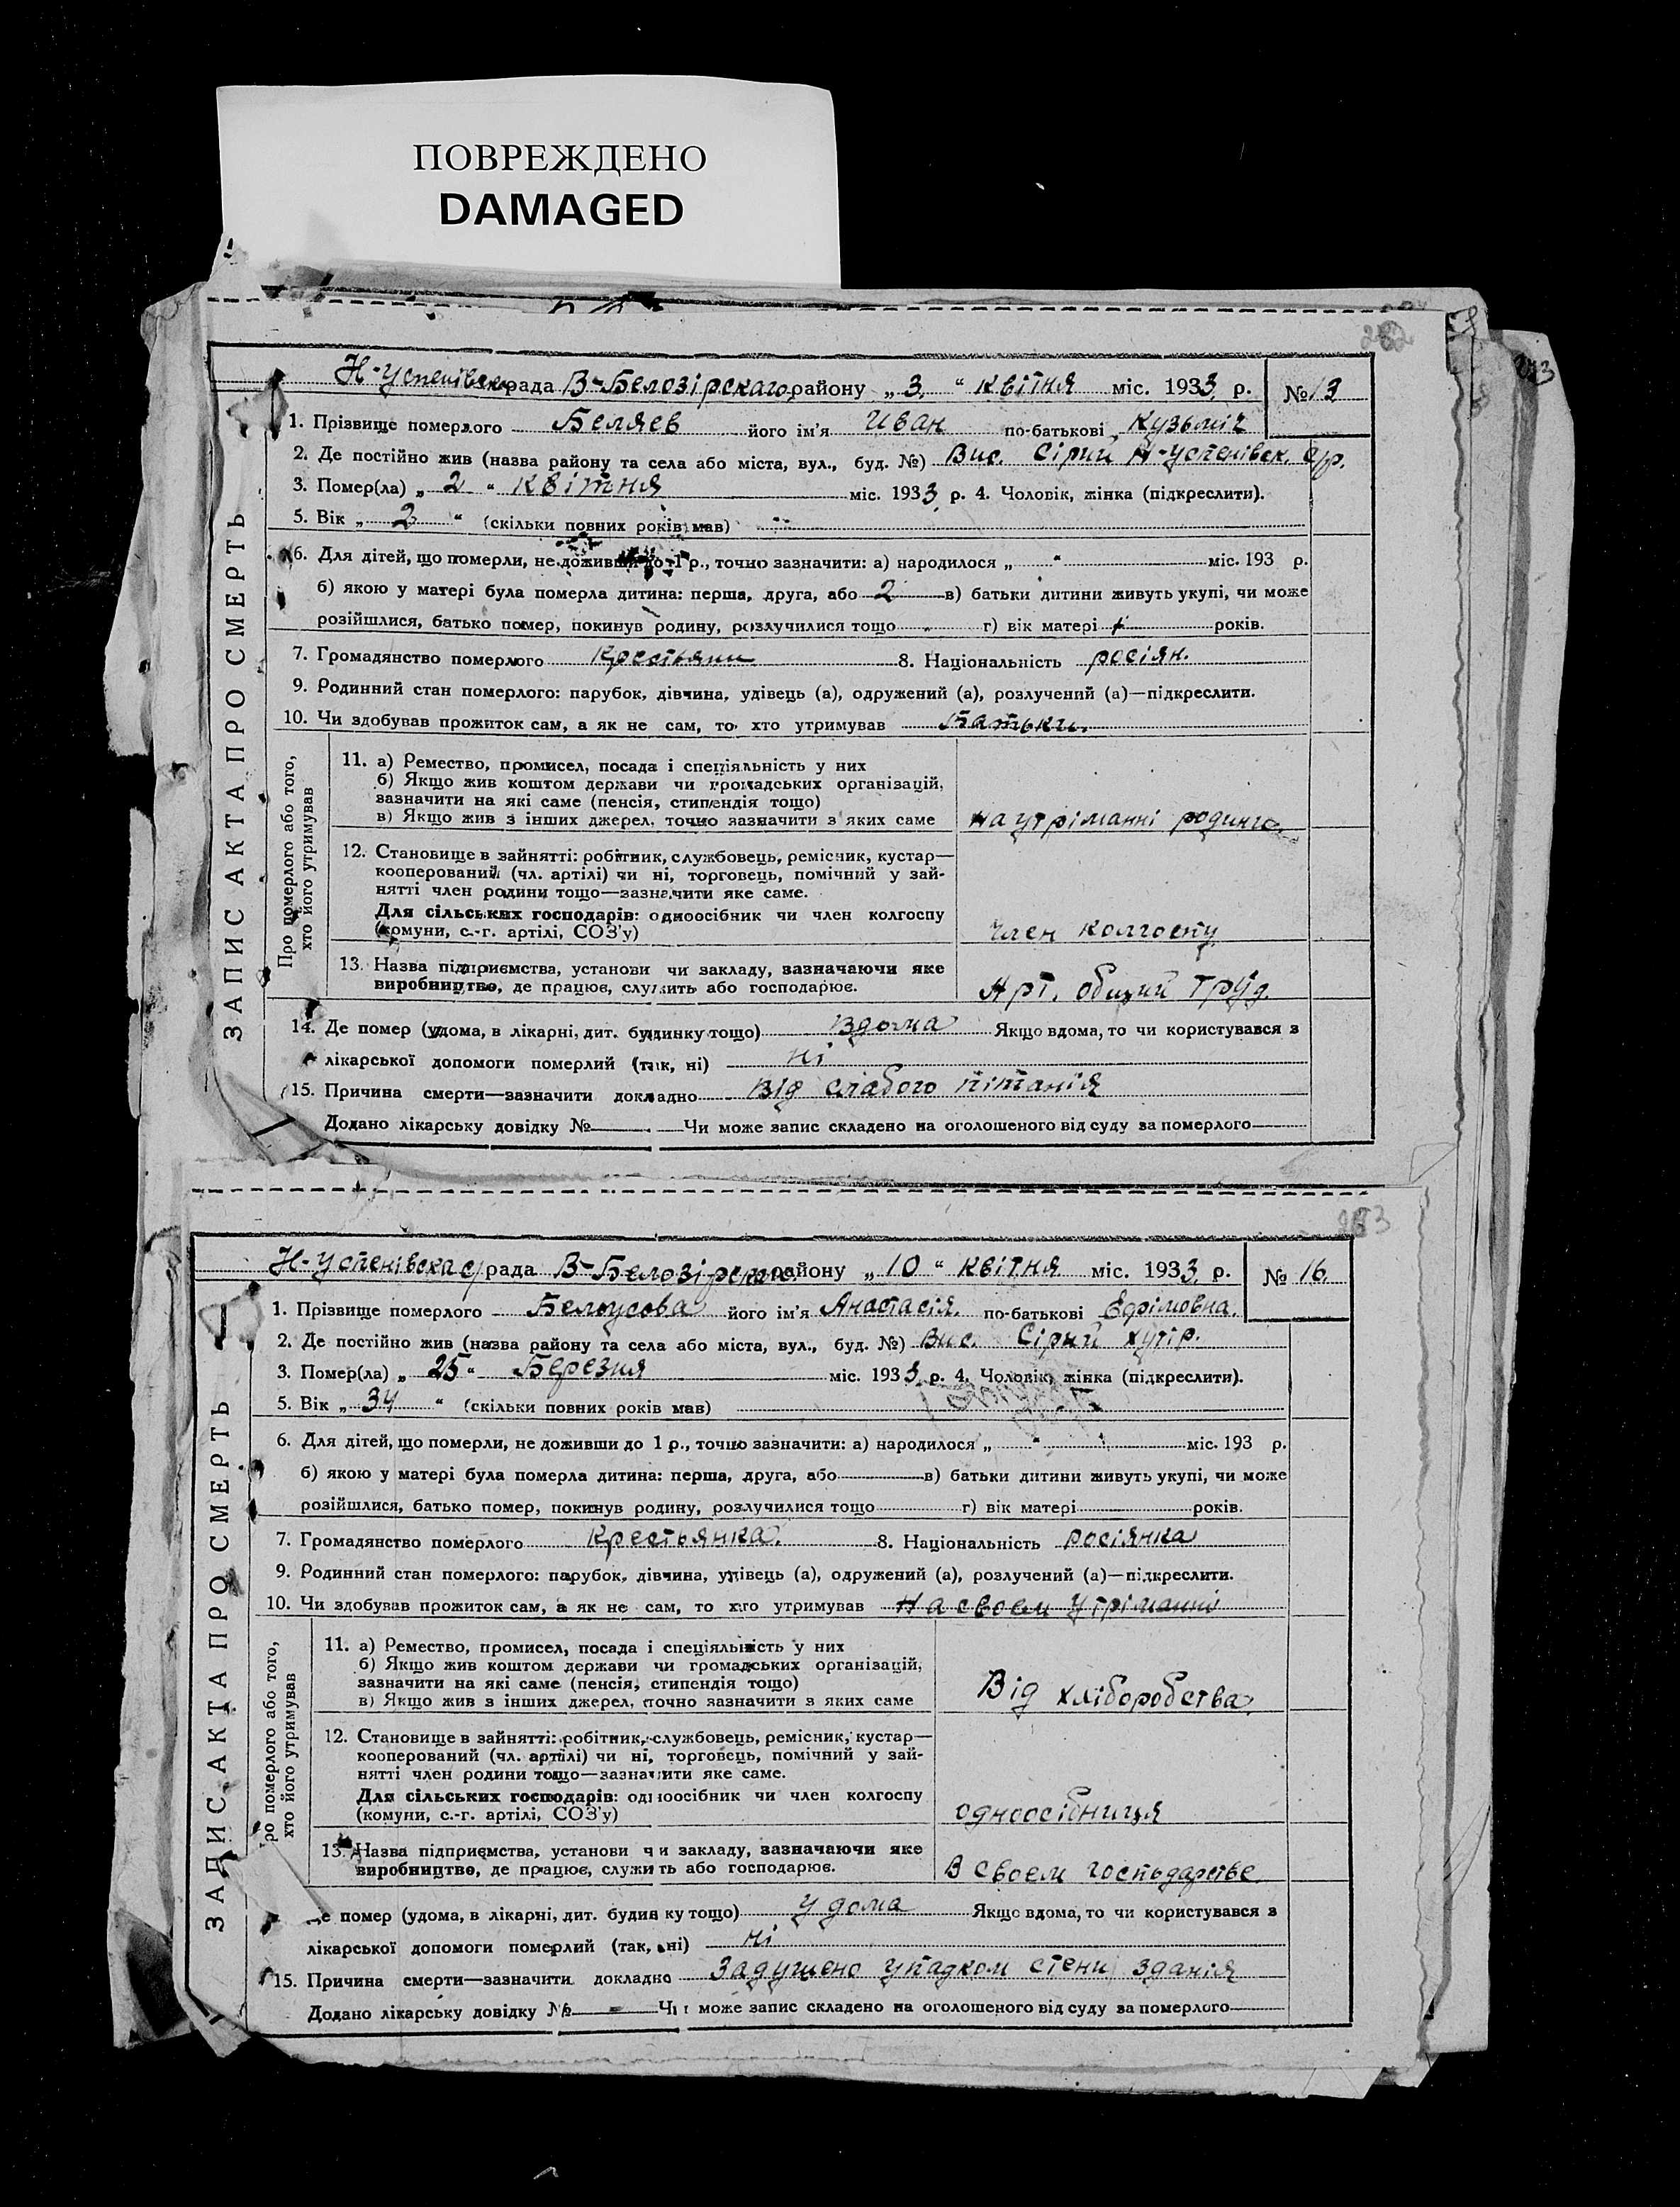 ПОВРЕЖДЕНО
DAMAGED
282
Н-Успенівська рада В-Белозірскаго району „3" квітня міс. 1933 р. № 13
ЗАПИС АКТА ПРО СМЕРТЬ
1. Прізвище померлого Беляев його ім'я Иван по-батькові Кузьміч
2. Де постійно жив (назва району та села або міста, вул., буд. №) Вис. Сірий Н-Успенівск. с/р.
3. Помер(ла) „2" квітня міс. 1933 р. 4. Чоловік, жінка (підкреслити).
5. Вік „2" (скільки повних років мав)
6. Для дітей, що померли, не доживши до 1 р., точно зазначити: а) народилося „ " міс. 193 р.
б) якою у матері була померла дитина: перша, друга, або 2 в) батьки дитини живуть укупі, чи може
розійшлися, батько помер, покинув родину, розлучилися тощо г) вік матері років.
7. Громадянство померлого крестьяни 8. Національність росіян.
9. Родинний стан померлого: парубок, дівчина, удівець (а), одружений (а), розлучений (а)—підкреслити.
10. Чи здобував прожиток сам, а як не сам, то хто утримував Батьки.
Про померлого або того,
хто його утримував
11. а) Ремество, промисел, посада і спеціяльність у них
б) Якщо жив коштом держави чи громадських організацій,
зазначити на які саме (пенсія, стипендія тощо)
в) Якщо жив з інших джерел, точно зазначити з яких саме на утріманні родини.
12. Становище в зайнятті: робітник, службовець, ремісник, кустар—
кооперований (чл. артілі) чи ні, торговець, помічний у зай-
нятті член родини тощо—зазначити яке саме.
Для сільських господарів: одноосібник чи член колгоспу
(комуни, с.-г. артілі, СОЗ'у) член колгоспу
13. Назва підприємства, установи чи закладу, зазначаючи яке
виробництво, де працює, служить або господарює. Арт. общий труд.
14. Де помер (удома, в лікарні, дит. будинку тощо) вдома Якщо вдома, то чи користувався з
лікарської допомоги померлий (так, ні) ні
15. Причина смерти—зазначити докладно від слабого пітанія
Додано лікарську довідку № Чи може запис складено на оголошеного від суду за померлого
283
Н-Успенівска с/рада В-Белозірскаго району „10" квітня міс. 1933 р. № 16
ЗАПИС АКТА ПРО СМЕРТЬ
1. Прізвище померлого Белоусова його ім'я Анастасія. по-батькові Ефрімовна.
2. Де постійно жив (назва району та села або міста, вул., буд. №) Вис. Сірий хутір.
3. Помер(ла) „25" Березня міс. 1933 р. 4. Чоловік, жінка (підкреслити).
5. Вік „34" (скільки повних років мав)
6. Для дітей, що померли, не доживши до 1 р., точно зазначити: а) народилося „ " міс. 193 р.
б) якою у матері була померла дитина: перша, друга, або в) батьки дитини живуть укупі, чи може
розійшлися, батько помер, покинув родину, розлучилися тощо г) вік матері років.
7. Громадянство померлого крестьянка. 8. Національність росіянка
9. Родинний стан померлого: парубок, дівчина, удівець (а), одружений (а), розлучений (а)—підкреслити.
10. Чи здобував прожиток сам, а як не сам, то хто утримував На своем утріманні
ро померлого або того,
хто його утримував
11. а) Ремество, промисел, посада і спеціяльність у них
б) Якщо жив коштом держави чи громадських організацій,
зазначити на які саме (пенсія, стипендія тощо)
в) Якщо жив з інших джерел, точно зазначити з яких саме Від хліборобства.
12. Становище в зайнятті: робітник, службовець, ремісник, кустар—
кооперований (чл. артілі) чи ні, торговець, помічний у зай-
нятті член родини тощо—зазначити яке саме.
Для сільських господарів: одноосібник чи член колгоспу
(комуни, с.-г. артілі, СОЗ'у) одноосібниця
13. Назва підприємства, установи чи закладу, зазначаючи яке
виробництво, де працює, служить або господарює. В своем господарстве.
Де помер (удома, в лікарні, дит. будинку тощо) у дома Якщо вдома, то чи користувався з
лікарської допомоги померлий (так, ні) ні
15. Причина смерти—зазначити докладно Задушено упадком стени зданія
Додано лікарську довідку № Чи може запис складено на оголошеного від суду за померлого